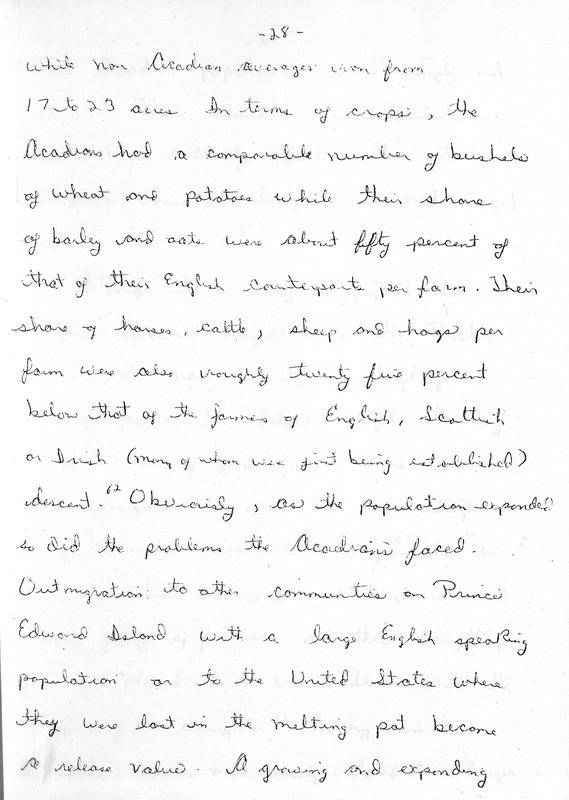 -28-
while non Acadian averages were from
17 to 23 acres In terms of crops, the
Acadians had a comparable number of bushels
of wheat and potatoes while their share
of barley and oats were about fifty percent of
that of their English counterparts per farm. Their
share of horses, cattle, sheep and hogs per
farm were also roughly twenty five percent
below that of the farmers of English, Scottish
or Irish (many of whom were just being established)
descent.62 Obviously, as the population expanded
so did the problems the Acadians faced.
Outmigration to other communities on Prince
Edward Island with a large English speaking
population or to the United States where
they were lost in the melting pot became
a release value. A growing and expanding